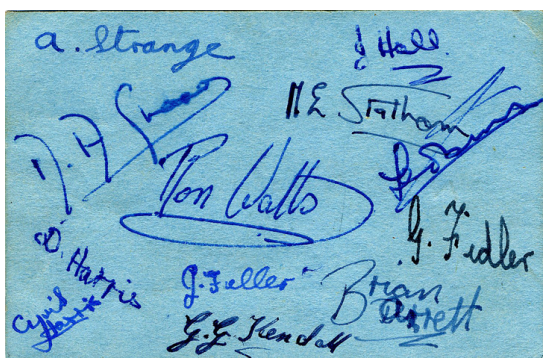 A. Strange
J Hall.
M E Statham
D. A. Shaw
Ron Watts
G. Fidler
D. Harris
J. Feller
Brian
Cyril
Harris
G. G. Kendall